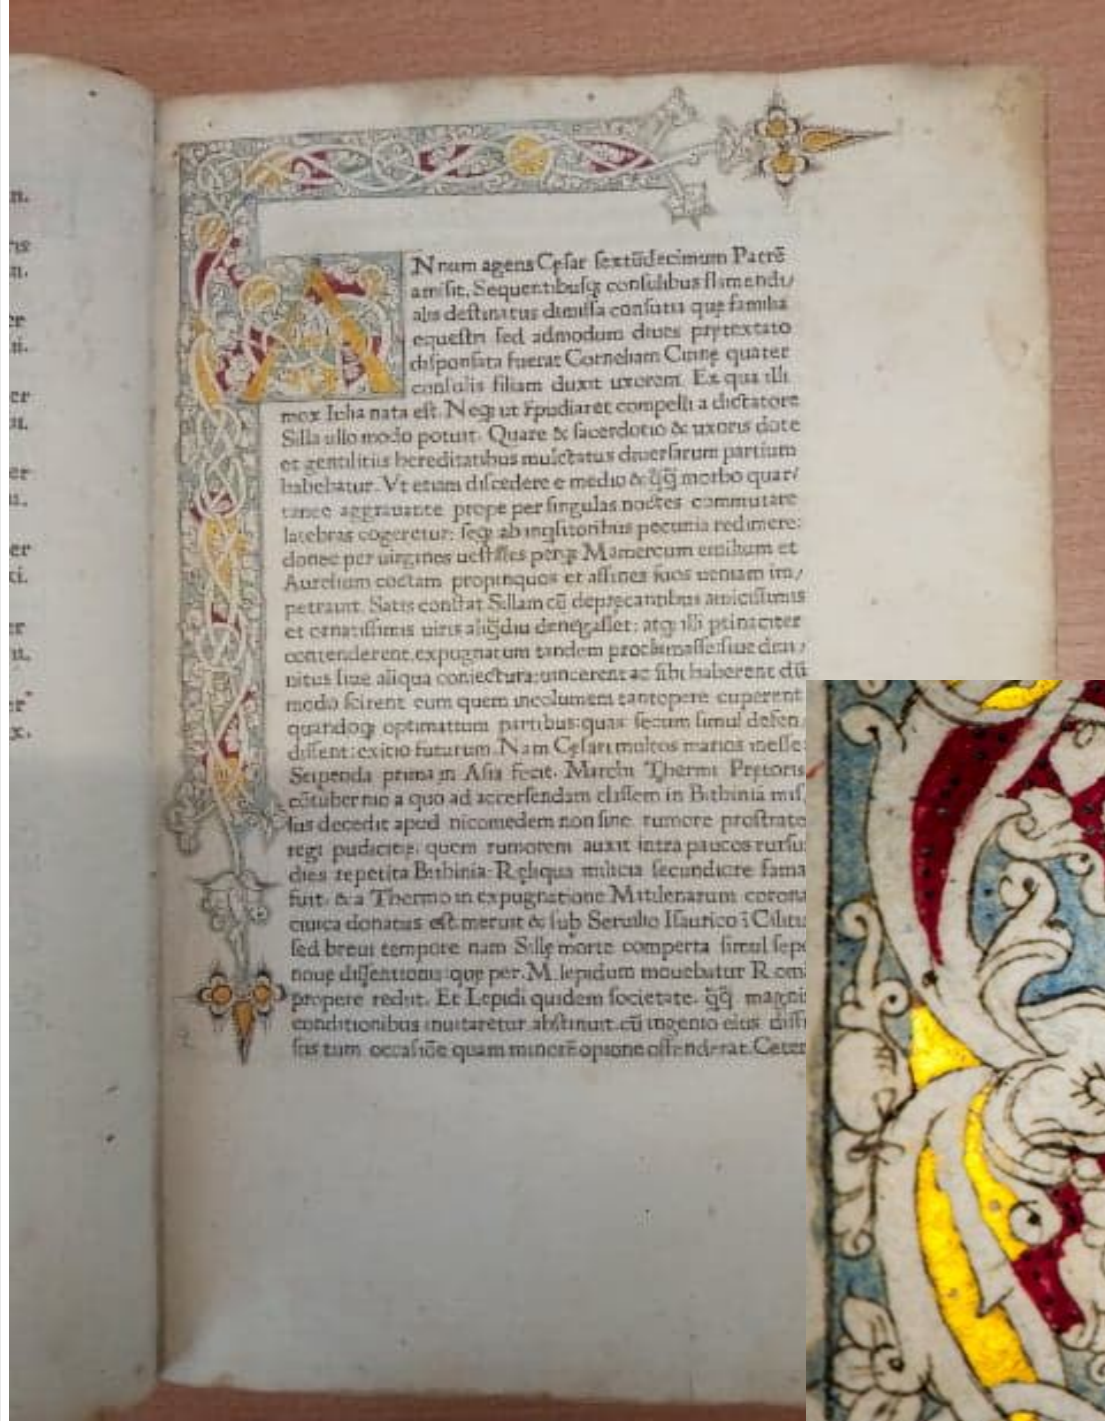 n.
ris
n.
er
ii.
er
u.
er
u.
er
ci.
er
u.
er
x.
ANnum agens Cęsar sextūdecimum Patrē
amisit. Sequentibusqȝ consulibus flamendi/
alis destinatus dimissa consutia quę familia
equestri sed admodum diues prętextato
disponsata fuerat Corneliam Cinnę quater
consulis filiam duxit uxorem. Ex qua illi
mox Iulia nata est. Neqȝ ut r̄pudiaret compelli a dictatore
Silla ullo modo potuit. Quare & sacerdotio & uxoris dote
et gentilitiis hereditatibus mulctatus diuersarum partium
habebatur. Vt etiam discedere e medio & q̄q̄ morbo quar/
tanee aggrauante prope per singulas noctes commutare
latebras cogeretur: seqȝ ab inqsitoribus pecunia redimere:
donec per uirgines uestales Mamercum emilium et
Aurelium coctam propinquos et affines suos ueniam im/
petrauit. Satis constat Sillam cū depręcantibus amicissimis
et ornatissimis uiris aliq̄diu denegasset: atqȝ illi ptinaciter
contenderent. expugnatum tandem proclamasse: siue diui/
nitus siue aliqua coniectura: uincerent ac sibi haberent dū
modo scirent eum quem incolumem tantopere cuperent
quandoqȝ optimatium partibus: quas secum simul defen
dissent: exitio futurum. Nam Cęsari multos marios inesse:
Stipendia prima in Asia fecit. Marchi Thermi Prętoris
cōtubernio a quo ad accersendam classem in Bithinia mis,
sus decedit apud nicomedem non sine rumore prostrate
regi pudicitię: quem rumorem auxit intra paucos rursu
dies repetita Bithinia. Ręliqua milicia secundiore fama
fuit. & a Thermo in expugnatione Mitilenarum corona
ciuica donatus est. meruit & sub Seruilio Isaurico ī Cilitia
sed breui tempore nam Sillę morte comperta simul sepe
nouę dissentionis: quę per. M. lepidum mouebatur Rom
propere rediit. Et Lepidi quidem societate. q̄q̄ magnis
conditionibus inuitaretur abstinuit. cū ingenio eius diffi
sus tum occasiōe quam minorē opione offenderat. Ceter